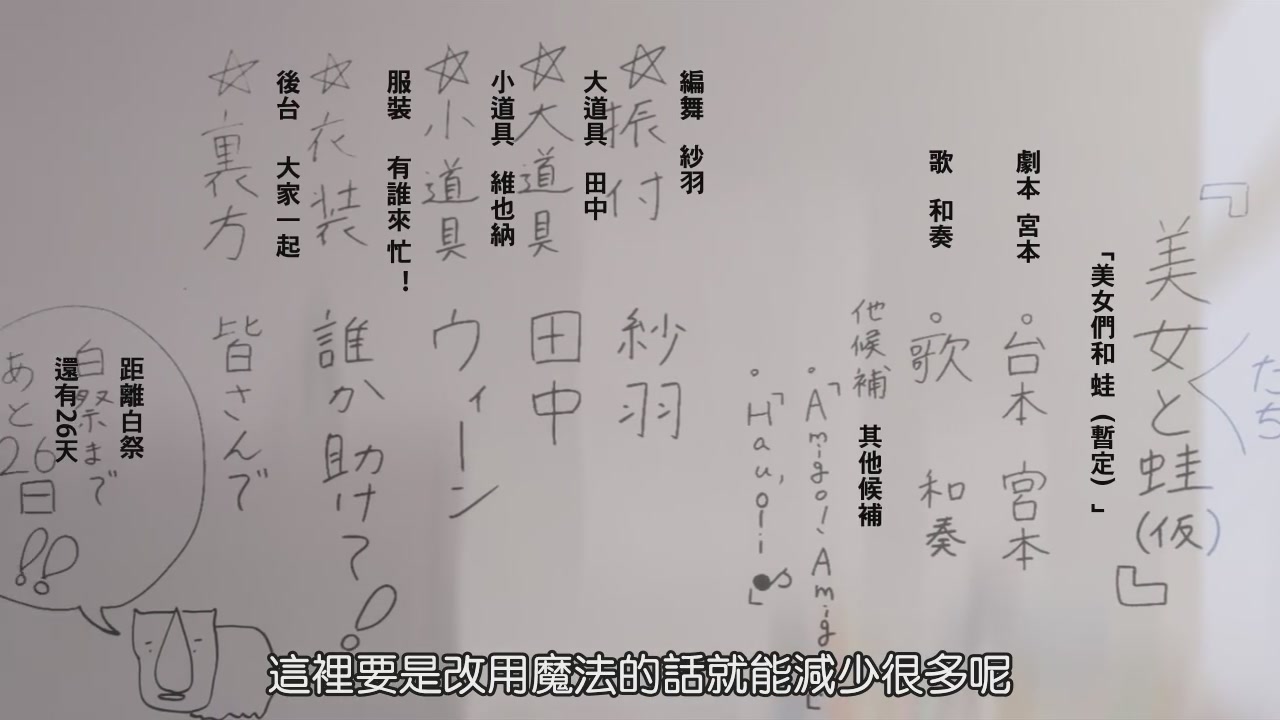 『美女と蛙(仮)』
たち
「美女們和 蛙（暫定）」
劇本 宮本
。台本 宮本
歌 和奏
。歌 和奏
他候補
其他候補
。「Amigo! Amig
。「Hau'oli」
編舞 紗羽
☆振付 紗羽
大道具 田中
☆大道具 田中
小道具 維也納
☆小道具 ウィーン
服裝 有誰來 忙！
☆衣装 誰か助けて!
後台 大家一起
☆裏方 皆さんで
距離白祭
還有26天
白祭まで
あと
26日!!
這裡要是改用魔法的話就能減少很多呢